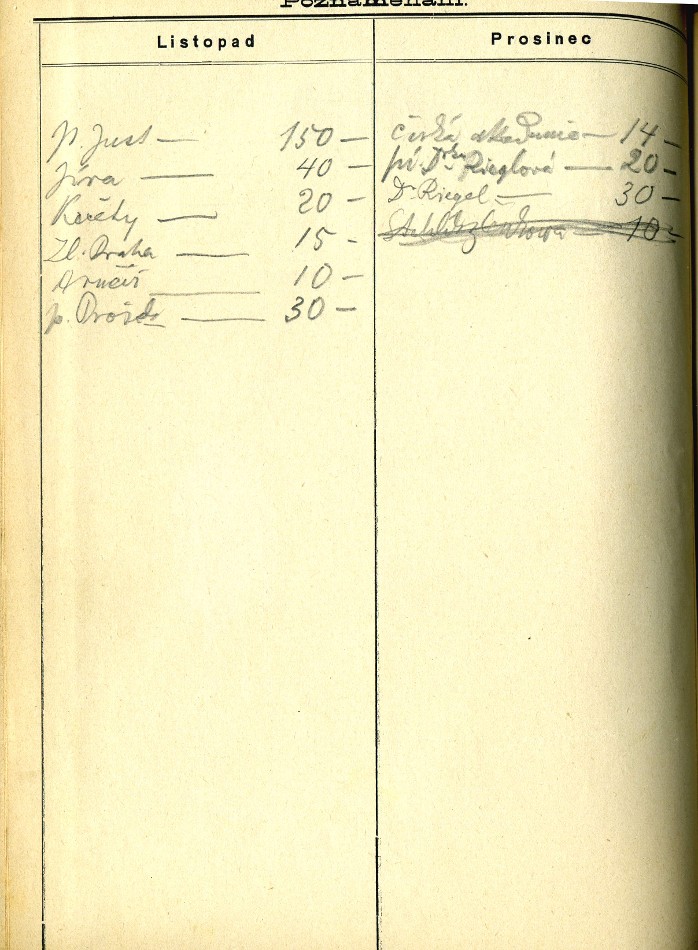 Poznamenání.
Listopad
p. Just — 150 —
Jíra — 40 —
Květy — 20 —
Zl. Praha — 15 -
10 —
p. — 30 —
Prosinec
česká akademie — 14 —
pí Drka Rieglová — 20 —
Dr Riegel — 30 —
10 -